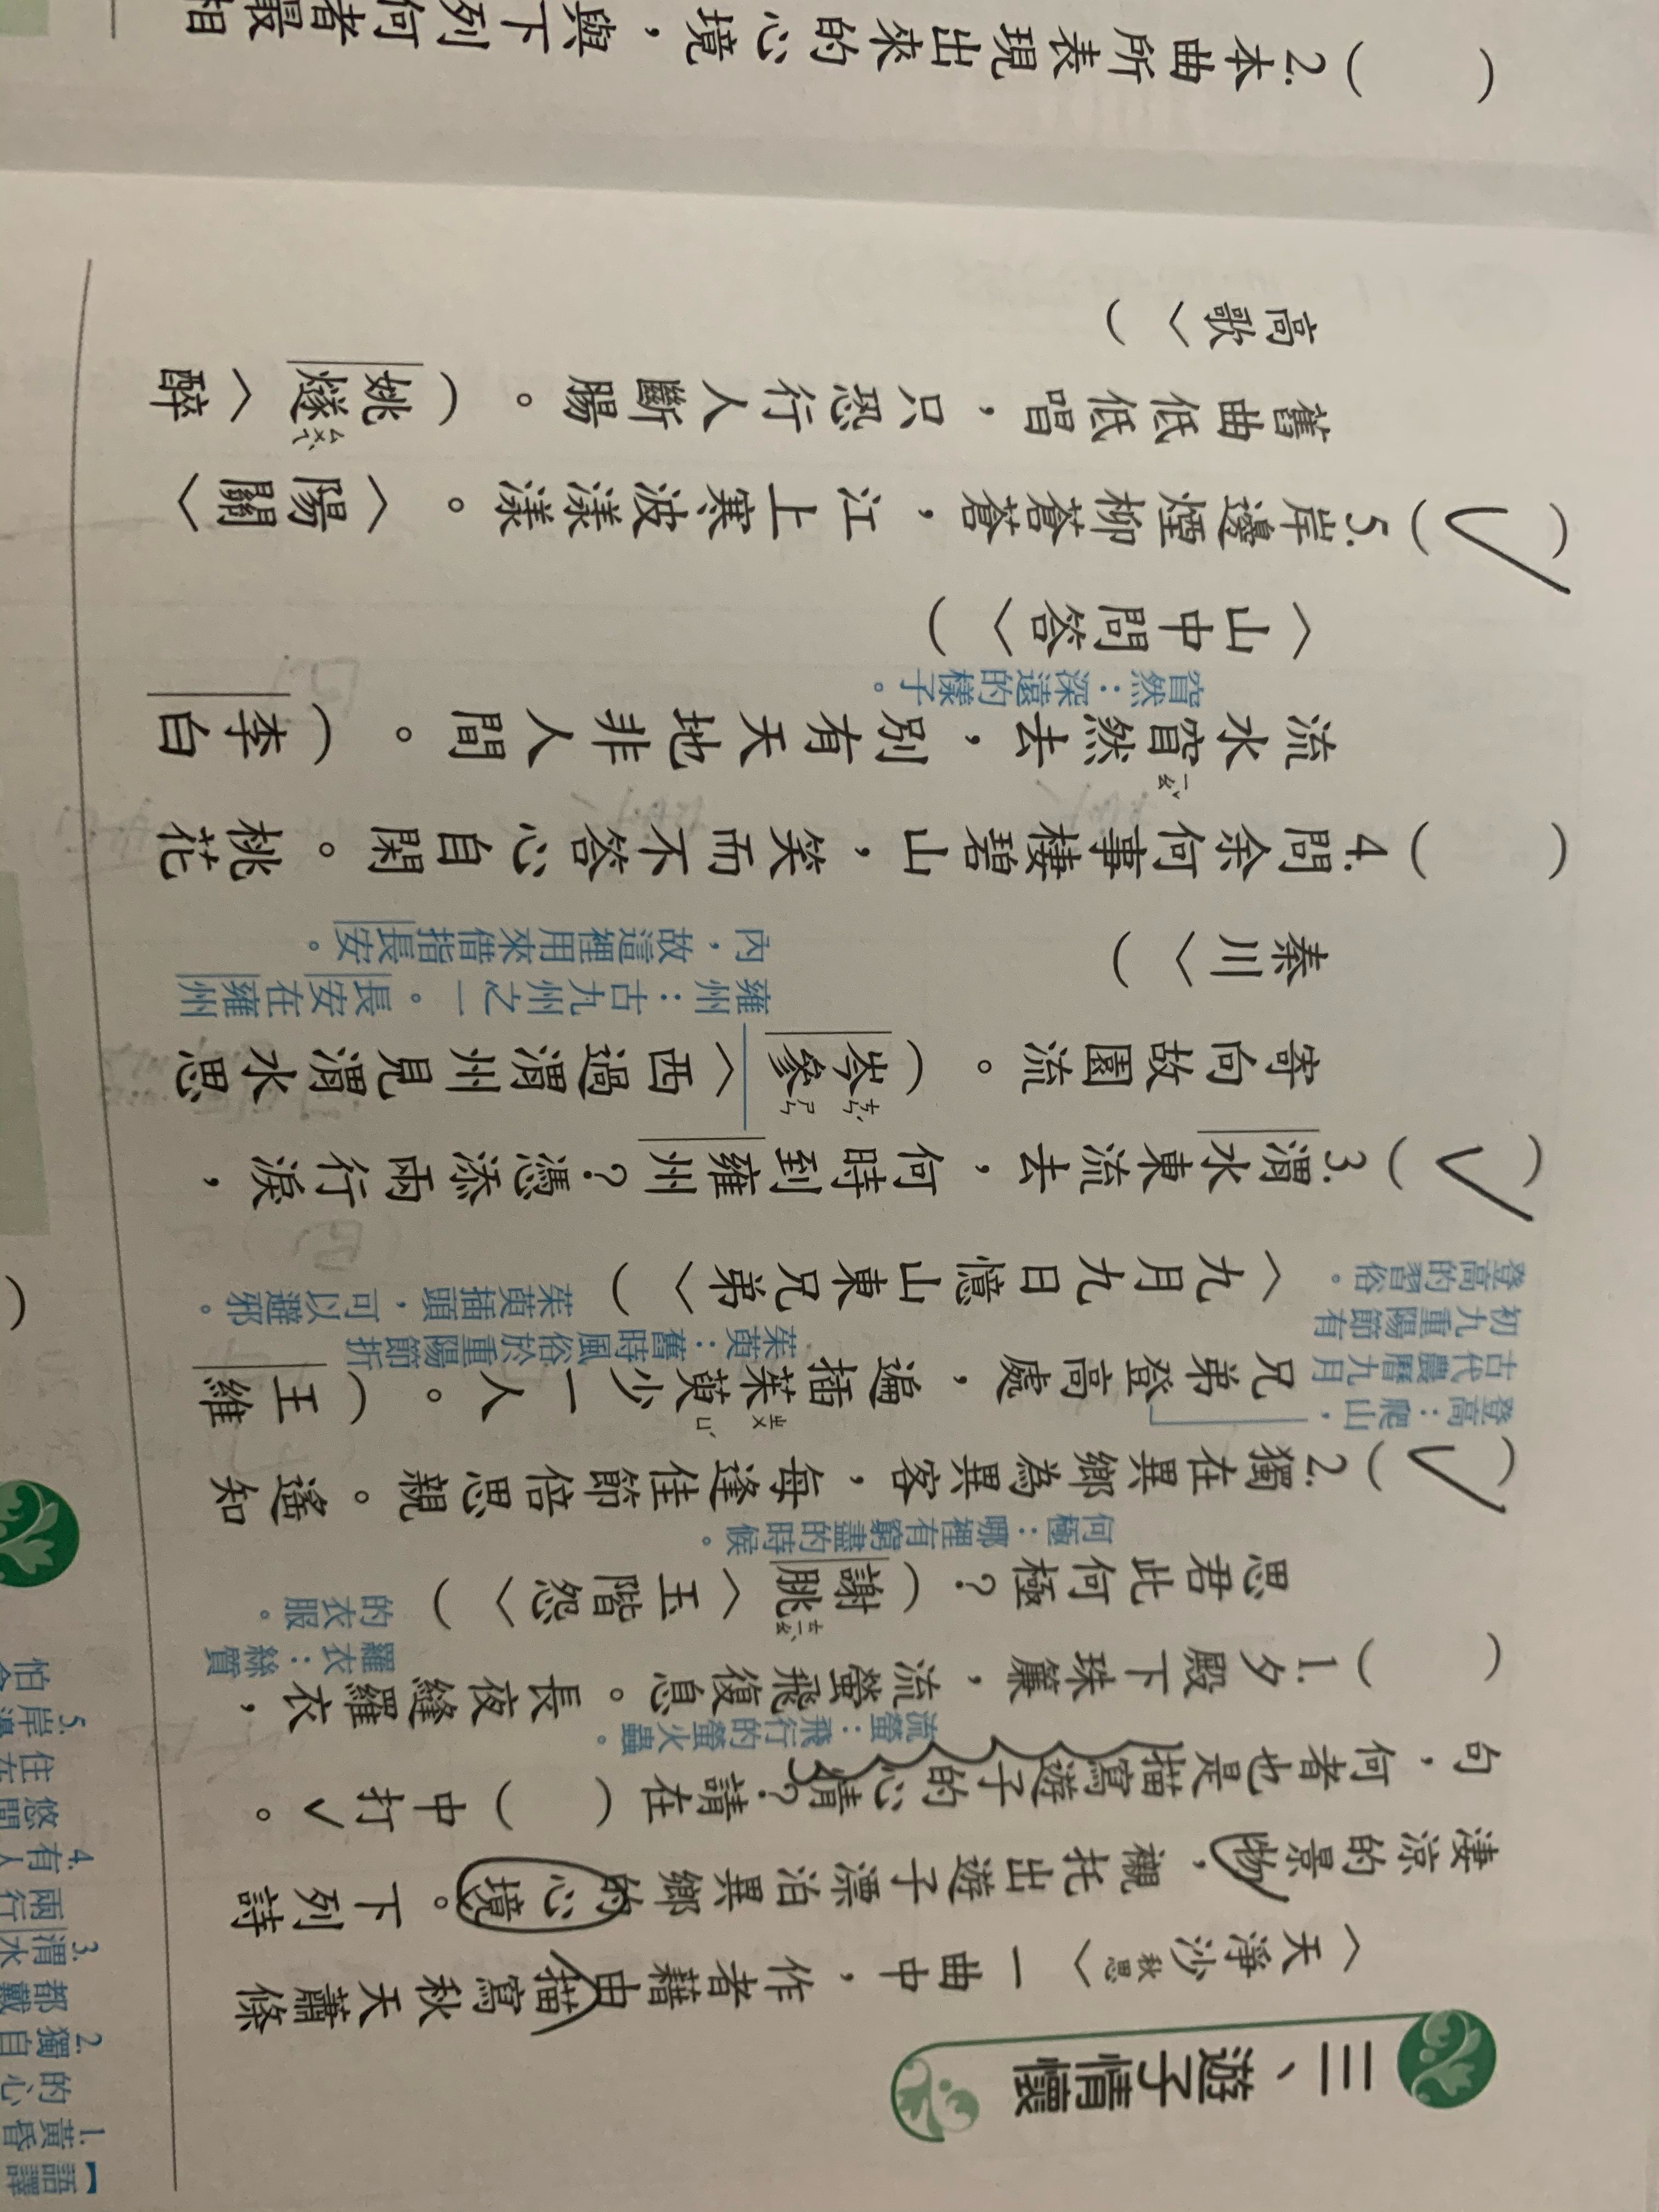 三、遊子情懷
〈天淨沙秋思〉一曲中，作者藉由描寫秋天蕭條
淒涼的景物，襯托出遊子漂泊異鄉的心境。下列詩
句，何者也是描寫遊子的心情？請在（　）中打✓。
流螢：飛行的螢火蟲。
（　）1.夕殿下珠簾，流螢飛復息。長夜縫羅衣，
羅衣：絲質
的衣服。
思君此何極？（謝朓ㄊㄧㄠˇ〈玉階怨〉）
何極：哪裡有窮盡的時候。
（✓）2.獨在異鄉為異客，每逢佳節倍思親。遙知
登高：爬山，
古代農曆九月
初九重陽節有
登高的習俗。
兄弟登高處，遍插茱ㄓㄨ萸ㄩˊ少一人。（王維
茱萸：舊時風俗於重陽節折
茱萸插頭，可以避邪。
〈九月九日憶山東兄弟〉）
（✓）3.渭水東流去，何時到雍州？憑添兩行淚，
寄向故園流。（岑ㄘㄣˊ參ㄕㄣ〈西過渭州見渭水思
雍州：古九州之一。長安在雍州
內，故這裡用來借指長安。
秦川〉）
（　）4.問余何事棲碧山，笑而不答心自閑。桃花
流水窅ㄧㄠˇ然去，別有天地非人間。（李白
窅然：深遠的樣子。
〈山中問答〉）
（✓）5.岸邊煙柳蒼蒼，江上寒波漾漾。〈陽關〉
舊曲低低唱，只恐行人斷腸。（姚燧ㄙㄨㄟˋ〈醉
高歌〉）
（　）2.本曲所表現出來的心境，與下列何者最相
【語譯
1.黃昏
的心
2.獨自
都戴
3.渭水
兩行
4.有人
悠閒
住在
5.岸邊
怕